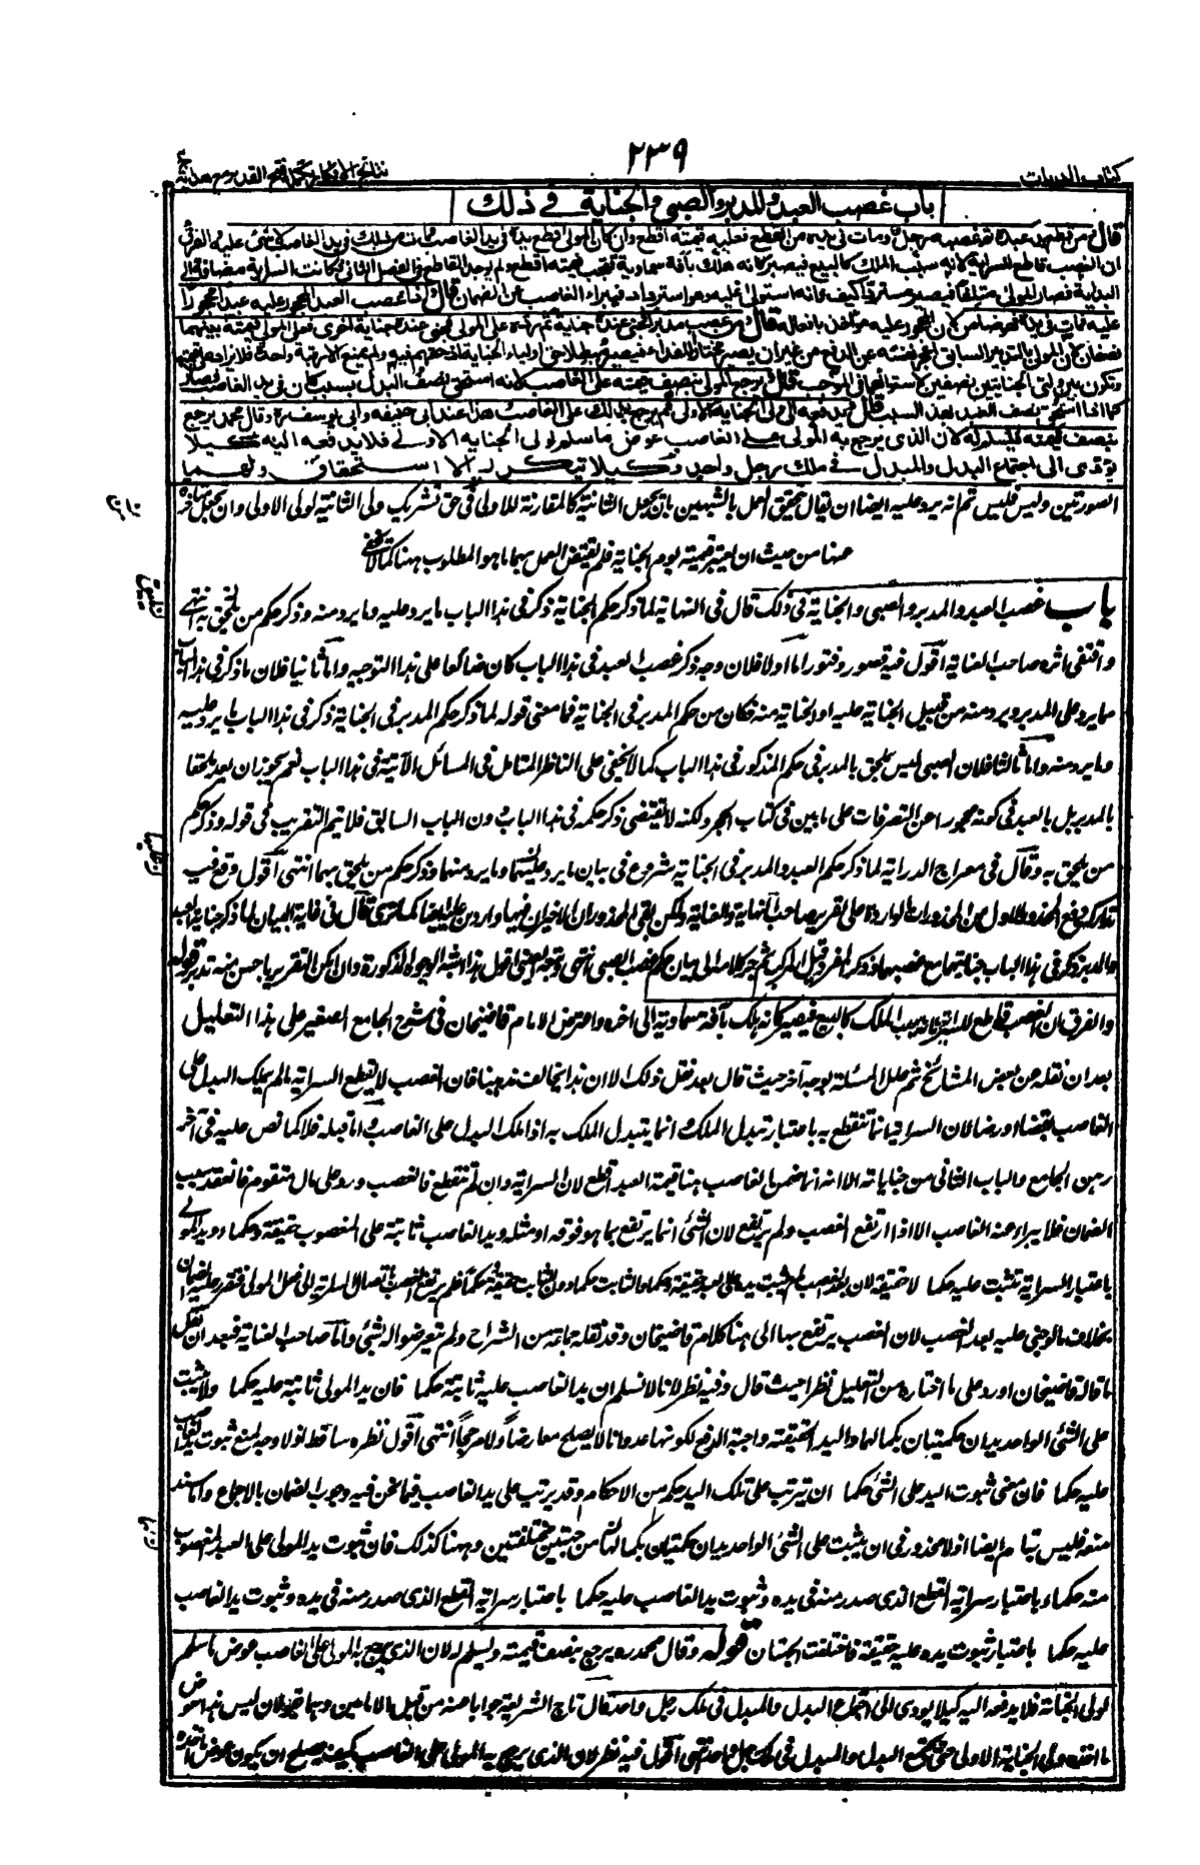 ٢٣٩
كتاب الديات
نتائج الافكار تكملة فتح القدير مع هداية
باب غصب العبد والمدبر والصبي والجناية في ذلك
قال من قطع يد عبده ثم غصبه رجل ومات في يده من القطع فعليه قيمته اقطع وان كان المولى قطع يده في يد الغاصب فمات من ذلك في يد الغاصب لا شئ عليه والفرق
ان الغصب قاطع للسراية لانه سبب الملك كالبيع فيصير كانه هلك بآفة سماوية فتجب قيمته اقطع ولم يوجد القاطع في الفصل الثاني فكانت السراية مضافة الى
البداية فصار المولى متلفا فيصير مستردا كيف وانه استولى عليه وهو استرداد فيبراء الغاصب عن الضمان قال واذا غصب العبد المحجور عليه عبدا محجورا
عليه فمات في يده فهو ضامن لان المحجور عليه مؤاخذ بافعاله قال ومن غصب مدبرا فجنى عنده جناية ثم رده على المولى فجنى عنده جناية اخرى فعلى المولى قيمته بينهما
نصفان لان المولى بالتدبير السابق اعجز نفسه عن الدفع من غير ان يصير مختارا للفداء فيصير مبطلا حق اولياء الجناية اذ حقهم فيه ولم يمنع الا رقبة واحدة فلا يزاد على قيمتها
وتكون بين وليي الجنايتين نصفين لاستوائهما في الموجب قال ويرجع المولى بنصف قيمته على الغاصب لانه استحق نصف البدل بسبب كان في يد الغاصب فصار
كما اذا استحق نصف العبد بهذا السبب قال ويدفعه الى ولي الجناية الاولى ثم يرجع بذلك على الغاصب وهذا عند ابي حنيفة وابي يوسف ره وقال محمد يرجع
بنصف قيمته فيسلم له لان الذي يرجع به المولى على الغاصب عوض ما سلم لولي الجناية الاولى فلا يدفعه اليه كيلا
يؤدي الى اجتماع البدل والمبدل في ملك رجل واحد وكيلا يتكرر الاستحقاق ولهما
الصورتين وليس فليس ثم انه يرد عليه ايضا ان يقال تحقيق العمل بالشبهين بان يجعل الثانية كالمقارنة للاولى في حق تشريك ولي الثانية لولي الاولى وان يجعل
من حيث ان يعتبر قيمته يوم الجناية فلم يقتض العمل بهما ما هو المطلوب ههنا كما لا يخفى
باب غصب العبد والمدبر والصبي والجناية في ذلك قال في النهاية لما ذكر حكم الجناية ذكر في هذا الباب ما يرد عليه وما يرد منه وذكر حكم من يلحق به انتهى
واقتفى اثره صاحب العناية اقول فيه قصور وفتور اما اولا فلان وجه ذكر غصب العبد في هذا الباب كان ضائعا على هذا التوجيه واما ثانيا فلان ما ذكر في هذا الباب
ما يرد على المدبر ويرد منه من قبيل الجناية عليه او الجناية منه فكان من حكم المدبر في الجناية فما معنى قوله لما ذكر حكم المدبر في الجناية ذكر في هذا الباب ما يرد عليه
وما يرد منه واما ثالثا فلان الصبي ليس يلحق بالمدبر في حكم المذكور في هذا الباب كما لا يخفى على الناظر المتامل في المسائل الآتية في هذا الباب نعم يجوز ان يعد ملحقا
بالمدبر بل بالعبد في كونه محجورا عن التصرفات على ما بين في كتاب الحجر ولكنه لا يقتضي ذكر حكمه في هذا الباب دون الباب السابق فلا يتم التقريب في قوله وذكر حكم
من يلحق به وقال في معراج الدراية لما ذكر حكم العبد والمدبر في الجناية شروع في بيان ما يرد عليهما وما يرد منهما وذكر حكم من يلحق بهما انتهى اقول وقع فيه
تدارك دفع المحذور الاول من المحذورات الواردة على تقرير صاحب النهاية والعناية ولكن بقي المحذوران الاخيران فيها واردين عليه ايضا كما ترى قال في غاية البيان لما ذكر جناية العبد
والمدبر ذكر في هذا الباب جنايتهما مع غصبهما وذكر المفرد قبل المركب ثم جر كلامه الى بيان حكم غصب الصبي انتهى اقول هذا اشبه الوجوه المذكورة وان امكن التقرير باحسن منه تدبر قوله
والفرق ان الغصب قاطع للسراية لانه سبب الملك كالبيع فيصير كانه هلك بآفة سماوية الى اخره واعترض الامام قاضيخان في شرح الجامع الصغير على هذا التعليل
بعد ان نقله عن بعض المشائخ ثم علل المسئلة بوجه آخر حيث قال بعد نقل ذلك الا ان هذا يخالف مذهبنا فان الغصب لا يقطع السراية ما لم يملك البدل على
الغاصب بقضاء او رضا لان السراية انما تنقطع به باعتبار تبدل الملك وانما يتبدل الملك به اذا ملك البدل على الغاصب اما قبله فلا كما نص عليه في آخر
رهن الجامع والباب الثاني من جناياته الا انه انما ضمن الغاصب هنا قيمة العبد اقطع لان السراية وان لم تنقطع فالغصب ورد على مال متقوم فانعقد سبب
الضمان فلا يبراء عنه الغاصب الا اذا ارتفع الغصب ولم يرتفع لان الشئ انما يرتفع بما هو فوقه او مثله ويد الغاصب ثابتة على المغصوب حقيقة وحكما ويد المولى
باعتبار السراية تثبت عليه حكما لا حقيقة لان بعد الغصب لم يثبت يده على العبد حقيقة وحكما والثابت حكما دون الثابت حقيقة وحكما فلم يرتفع الغصب باتصال السراية الى فعل المولى فتقرر عليه الضمان
بخلاف ما لو جنى عليه بعد الغصب لان الغصب يرتفع بها الى هنا كلام قاضيخان وقد نقله جماعة من الشراح ولم يتعرضوا له بشئ واما صاحب العناية فبعد ان نقل
ما قاله قاضيخان اورد على ما اختاره من التعليل نظرا حيث قال وفيه نظر لانا لا نسلم ان يد الغاصب عليه ثابتة حكما فان يد المولى ثابتة عليه حكما ولا يثبت
على الشئ الواحد يدان حكميتان بكمالهما واليد الحقيقية واجبة الرفع لكونها عدوانا لا يصلح معارضا ولا مرجحا انتهى اقول نظره ساقط اذ لا وجه لمنع ثبوت يد الغاصب
عليه حكما فان معنى ثبوت اليد على الشئ حكما ان يترتب على تلك اليد حكم من الاحكام وقد يرتب على يد الغاصب فيما نحن فيه وجوب الضمان بالاجماع واما سند
منعه فليس بتام ايضا اذ لا محذور في ان يثبت على الشئ الواحد يدان حكميتان بكمالهما من جهتين مختلفتين وههنا كذلك فان ثبوت يد المولى على العبد المغصوب
منه حكما باعتبار سراية القطع الذي صدر منه في يده وثبوت يد الغاصب عليه حكما باعتبار سراية القطع الذي صدر منه في يده وثبوت يد الغاصب
عليه حكما باعتبار ثبوت يده عليه حقيقة فاختلفت الجهتان قوله وقال محمد ره يرجع بنصف قيمته ويسلم له لان الذي يرجع به المولى على الغاصب عوض ما سلم
لولي الجناية فلا يدفعه اليه كيلا يودي الى اجتماع البدل والمبدل في ملك رجل واحد قال تاج الشريعة جوابا عنه من قبل الامامين وهما يقولان ليس هذا عوض
ما اخذه ولي الجناية الاولى حتى يجتمع البدل والمبدل في ملك رجل واحد انتهى اقول فيه نظر لان الذي يرجع به المولى على الغاصب كيف يصلح ان يكون عوض ما اخذه